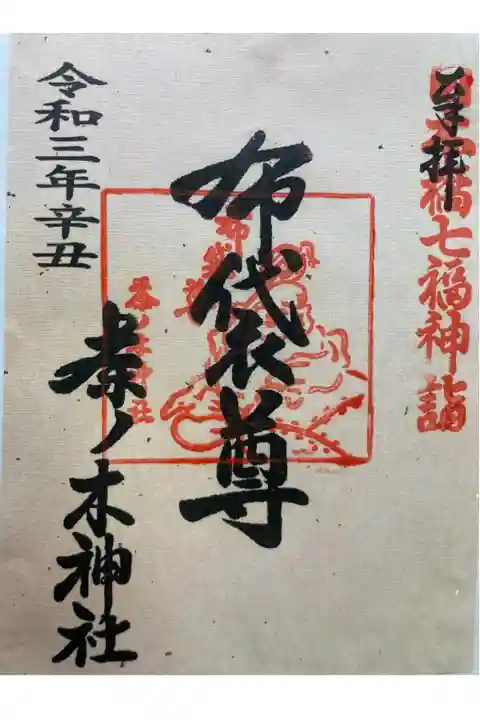 奉拝
日本橋七福神詣
布袋尊
布袋尊
茶ノ木神社
令和三年辛丑
茶ノ木神社